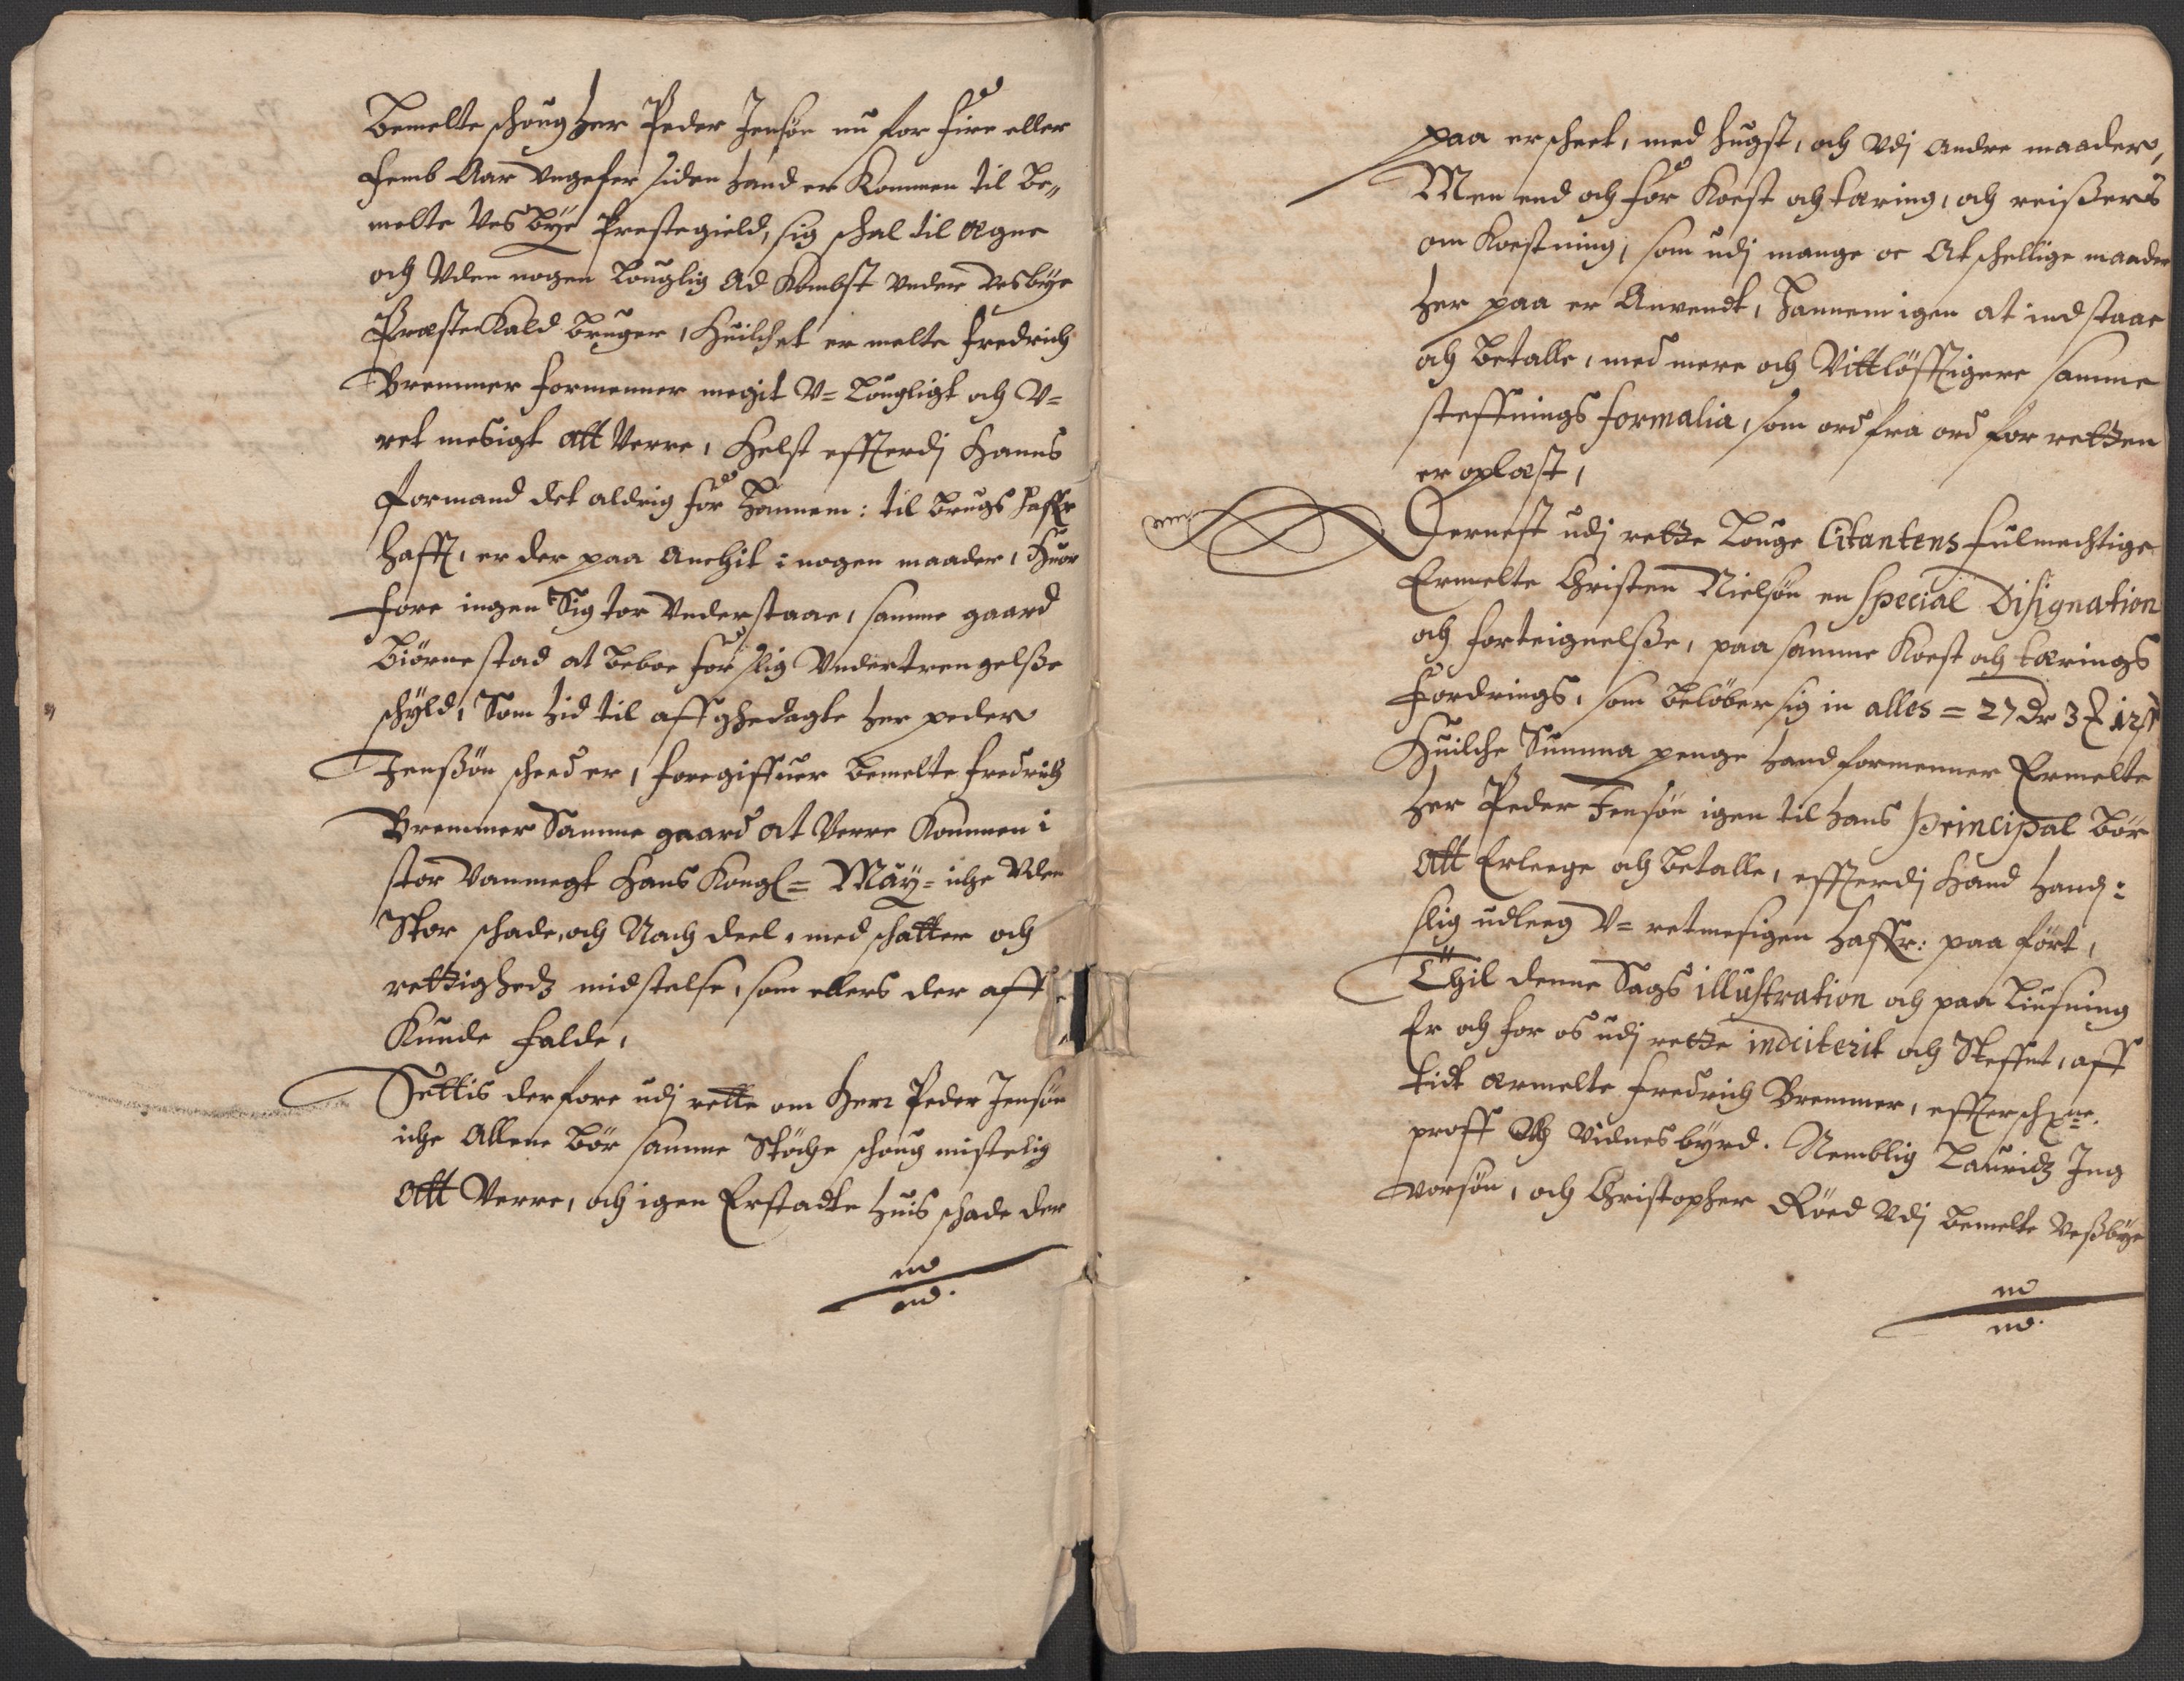 Bemelte schoug her Peder Jensøn nu for fire eller
femb Aar Ungefer siden hand er Kommen til Be„
melte Ves Bÿe Prestegield, sig schal til Agne
och Uden nogen Louglig Ad Kombst under Vesbÿe
Præste Kald Bruger, Huilchet er melte fredrich
Bremmer formenner megit V= Lougligt och V=
ret mesigt Att Verre, Helst effterdj Hanns
formand det aldrig før Hannem: til Brugs haffr
hafft, er der paa Anchit i nogen maader, Huor
fore ingen Sig tør Understaae, samme gaard
Biørnestad at beboe for slig Undertrengelße
schÿld, Som hid til aff ghedagte her peder
Jensßøn scheed er, foregiffuer Bemelte fredrich
Bremmer Samme gaard at Verre Kommen i
stor Vanmegt Hans Kongl= Maÿ= iche Uden
Stor schade, och Nach deel, med schatter och
rettigheds midstelse, som ellers der aff
Kunde falde,
Settis derfore udj rette om Herr Peder Jensøn
iche Allene Bør samme Støche schoug mistelig
Att Verre, och igen Erstadte huis schade der
paa er scheet, med hugst, och Udj Andre maader,
Men end och for Koest och tæring, och reißers
om Kostning, som udj mange oc Atschellige maader
her paa er Anvendt, Hannem igen at indstaae
och Betalle, med mere och Vittløfftigere samme
steffnings formalia, som ord fra ord for retten
er oplæst,
Dernest udj rette Louge Citantens fulmechtige
Ermelte Christen Nielsøn en special Disignation
och forteignelße, paa samme Koest och tærings
fordrings, som Beløber sig in alles = 27 dr 3 12
Huilche Summa penge hand formenner Ermelte
her Peder Jensøn igen til hans principal Bør
Att Erlegge och Betalle, effterdj Hand hand:
slig udleeg V= retmesigen haffr: paa ført,
Thil denne Sags illustration och paa Liusning
Er och for os udj rette indciterit och Steffnt, aff
tidt ermelte fredrich Bremmer, effterschne
proff Och Vidnesbÿrd. Nemblig Lauridz Ing
vorsøn, och Christopher Røed Udj Bemelte Veßbÿe